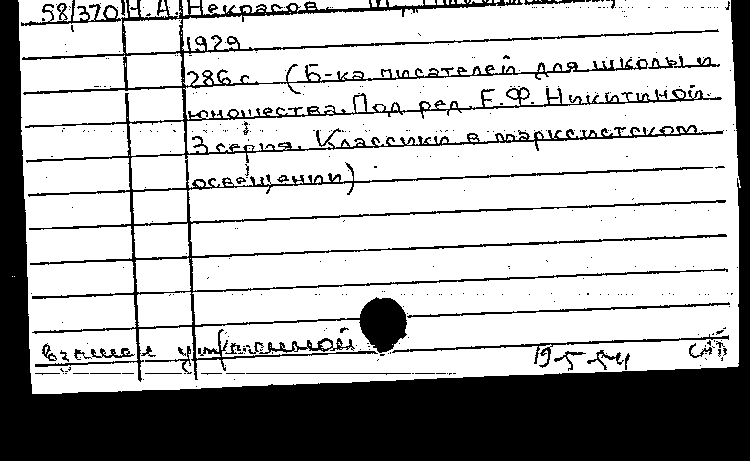 58/370 Н. А. Некрасов. М.,
1929.
286 с. (Б-ка писателей для школы и
юношества. Под ред. Е.Ф. Никитиной.
3 серия. Классики в марксистском
освещении)
взамен утраченной
19-5-54